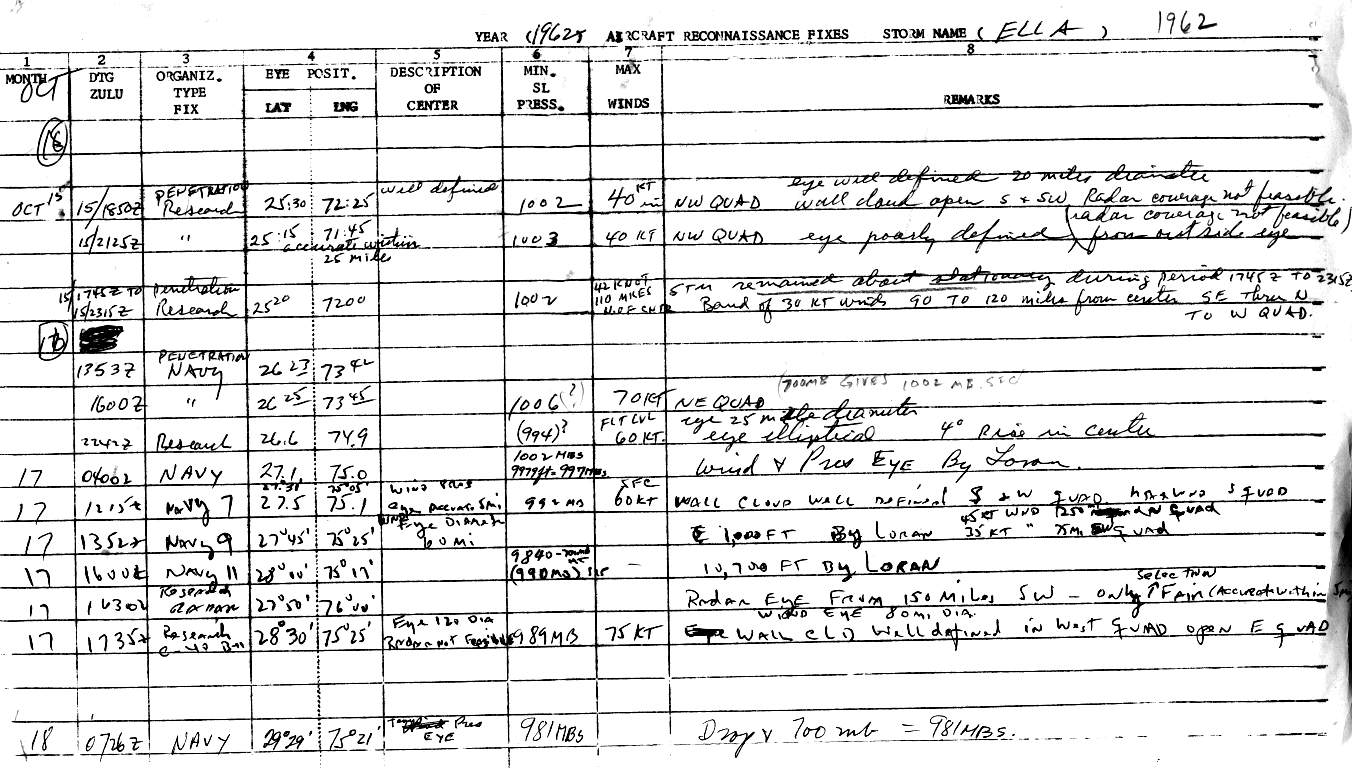 YEAR (1962) AIRCRAFT RECONNAISSANCE FIXES STORM NAME (ELLA) 1962
1 2 3 4 5 6 7 8
MONTH DTG ZULU ORGANIZ. TYPE FIX EYE POSIT. LAT LNG DESCRIPTION OF CENTER MIN. SL PRESS. MAX WINDS REMARKS
OCT
eye well defined 20 miles diameter
OCT 15 15/1850Z PENETRATION Research 25:30 72:25 well defined 1002 40 KT in NW QUAD wall cloud open S & SW Radar coverage not feasible.
15/2125Z " 25:15 71:45 accurate within 25 miles 1003 40 KT NW QUAD eye poorly defined (radar coverage not feasible) from outside eye
15/1745Z TO 15/2315Z Penetration Research 25 20 72 00 1002 42 KNOT 110 MILES N. OF CNTR STM remained about stationary during period 1745Z TO 2315Z
Band of 30 KT winds 90 TO 120 miles from center SE Thru N TO W QUAD.
16
1353Z PENETRATION NAVY 26 23 73 42
(700MB GIVES 1002 MB. SFC)
1600Z " 26 25 73 45 1006(?) 70 KT NE QUAD
eye 25 mile diameter
2242Z Research 26.6 74.9 (994)? FLT LVL 60 KT. eye elliptical 4° Rise in center
17 0400Z NAVY 27.1 75.0 1002 MBS 9979ft = 997MBS Wind & Pres EYE By Loran.
17 1215Z Navy 7 27.5 75.1 WIND PRES eye 992 MB SFC 60KT WALL CLOUD WALL DEFINED S & W QUAD. S QUAD
17 1352Z NAVY 9 27°45' 75°25' Eye Diameter 60 mi 1,000 FT By LORAN 45 KT WND QUAD
35 KT " QUAD
17 1600Z NAVY 11 28°00' 75°17' 9840 (990MB) – 10,700 FT By LORAN
17 1630Z Research 27°50' 76°00' Radar EYE FROM 150 MILES SW – only Fair selection (Accurate within
WIND EYE 80 MI. DIA.
17 1735Z Research 28°30' 75°25' Eye 120 DIA Radar not feasible 989 MB 75 KT WALL CLD Well defined in West QUAD open E QUAD
18 0726Z NAVY 29°29' 75°21' Pres EYE 981 MBS Drop & 700 mb = 981 MBS.